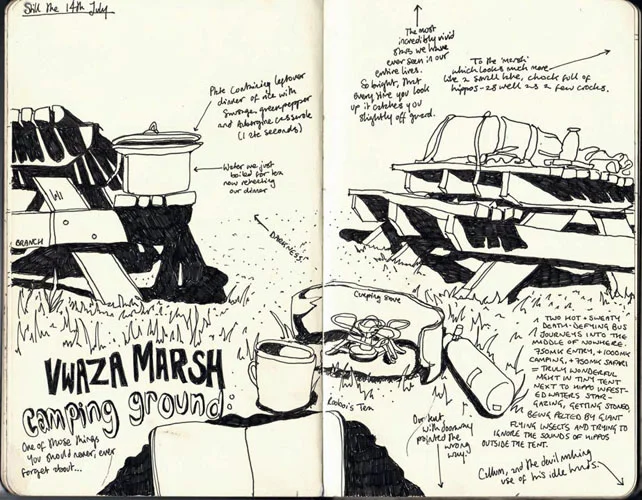 Still the 14th July
Plate containing leftover
dinner of rice with
green pepper
and aubergine casserole
(I ate seconds)
Water we just
boiled for tea
now reheating
our dinner
BRANCH
DARKNESS
VWAZA MARSH
camping ground:
One of those things
you should never, ever
forget about...
The most
incredibly vivid
stars we have
ever seen in our
entire lives.
So bright, that
every time you look
up it catches you
slightly off guard.
To the 'marsh'
which looks much more
like a small lake, chock full of
hippos - as well as a few crocs.
Camping Stove
Tea
Our tent,
with doorway
pointed the
wrong
way.
TWO HOT + SWEATY
DEATH-DEFYING BUS
JOURNEYS INTO THE
MIDDLE OF NOWHERE.
750MK ENTRY, + 1000MK
CAMPING, + 750MK SAFARI
= TRULY WONDERFUL
NIGHT IN TINY TENT
NEXT TO HIPPO INFEST-
ED WATERS STAR-
GAZING, GETTING STONED,
BEING PELTED BY GIANT
FLYING INSECTS AND TRYING TO
IGNORE THE SOUNDS OF HIPPOS
OUTSIDE THE TENT.
Callum, and the devil making
use of his idle hands.